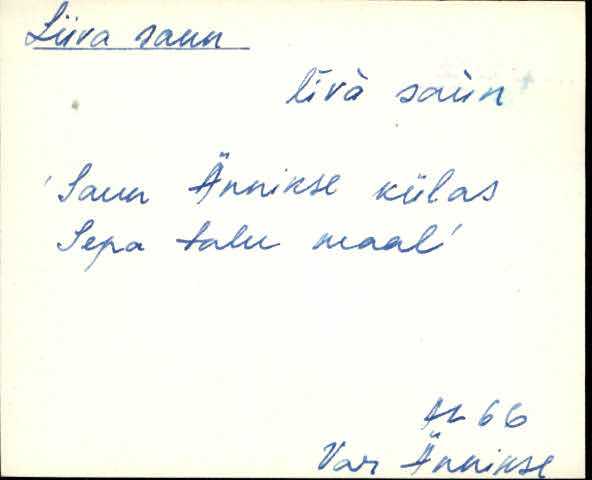 Liiva saun
līvà saùn
'Saun Ännikse külas
Sepa talu maal'
66
Var Ännikse